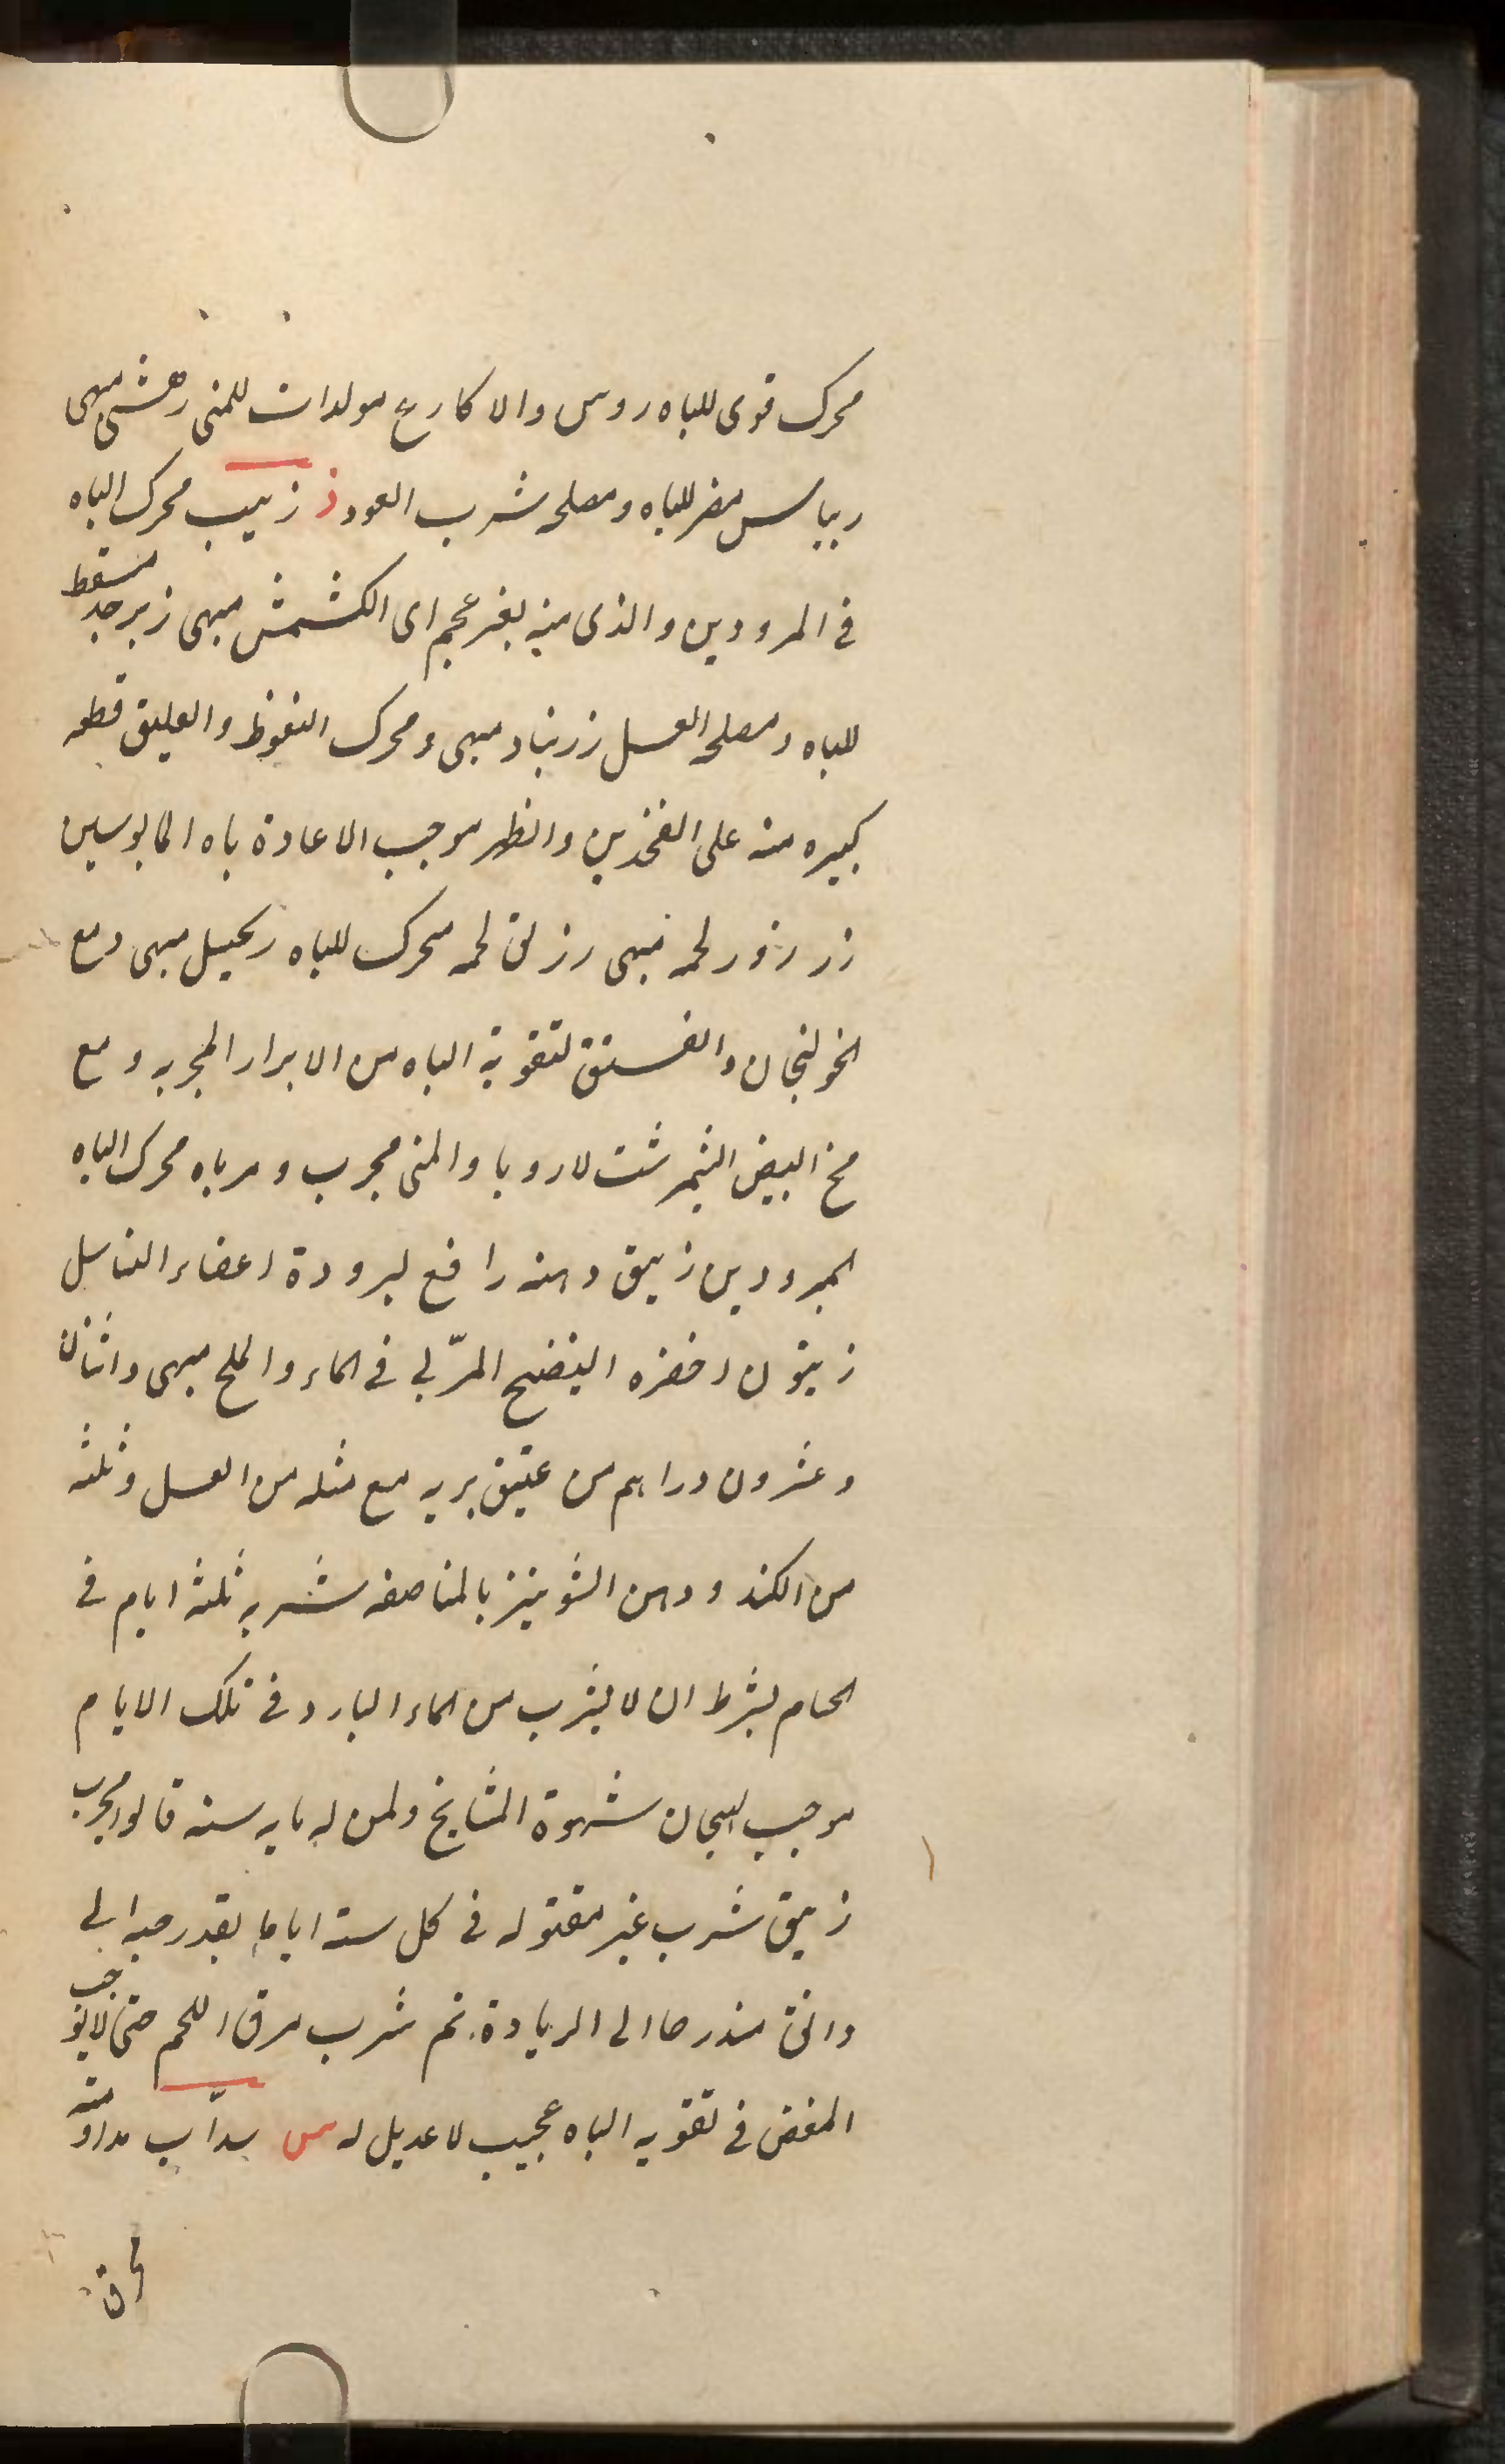 محرك قوى للباه روس والاكارع مولدات للمنى رهشى مبهى
ريباس مضر للباه ومصلحه شرب العود ز زبيب محرك الباه
فى المرودين والذى منه بغير عجم اى الكشمش مبهى زبرجد مسقط
للباه ومصلحه العسل زرنباد مبهى ومحرك النعوظ والعليق قطعه
كبيره منه على الفخذين والظهر موجب الاعادة باه المايوسين
زرزور لحمه مبهى رزلق لحمه محرك للباه زنجبيل مبهى ومع
الخولنجان والفستق لتقوية الباه من الابرار المجربه ومع
مخ البيض النيمرشت لازدياد المنى مجرب ومرباه محرك الباه
المبرودين زيبق دهنه رافع لبرودة اعضاء التناسل
زيتون اخضره النضيج المربّى فى الماء والملح مبهى واثنان
وعشرون دراهم من عتيق بريه مع مثله من العسل وثلثه
من الكندر ودهن الشونيز بالمناصفه شربه ثلثة ايام فى
الحمام بشرط ان لا يشرب من الماء البارد فى تلك الايام
موجب لهيجان شهوة المشايخ ولمن له مايه سنه قالوا مجرب
زيبق شرب غير مقتوله فى كل ستة اياما بقدر حبه الى
دانق مندرجا الى الزيادة ثم شرب مرق اللحم حتى لا يوجب
المغص فى تقويه الباه عجيب لا عديل له س سداب مداومته